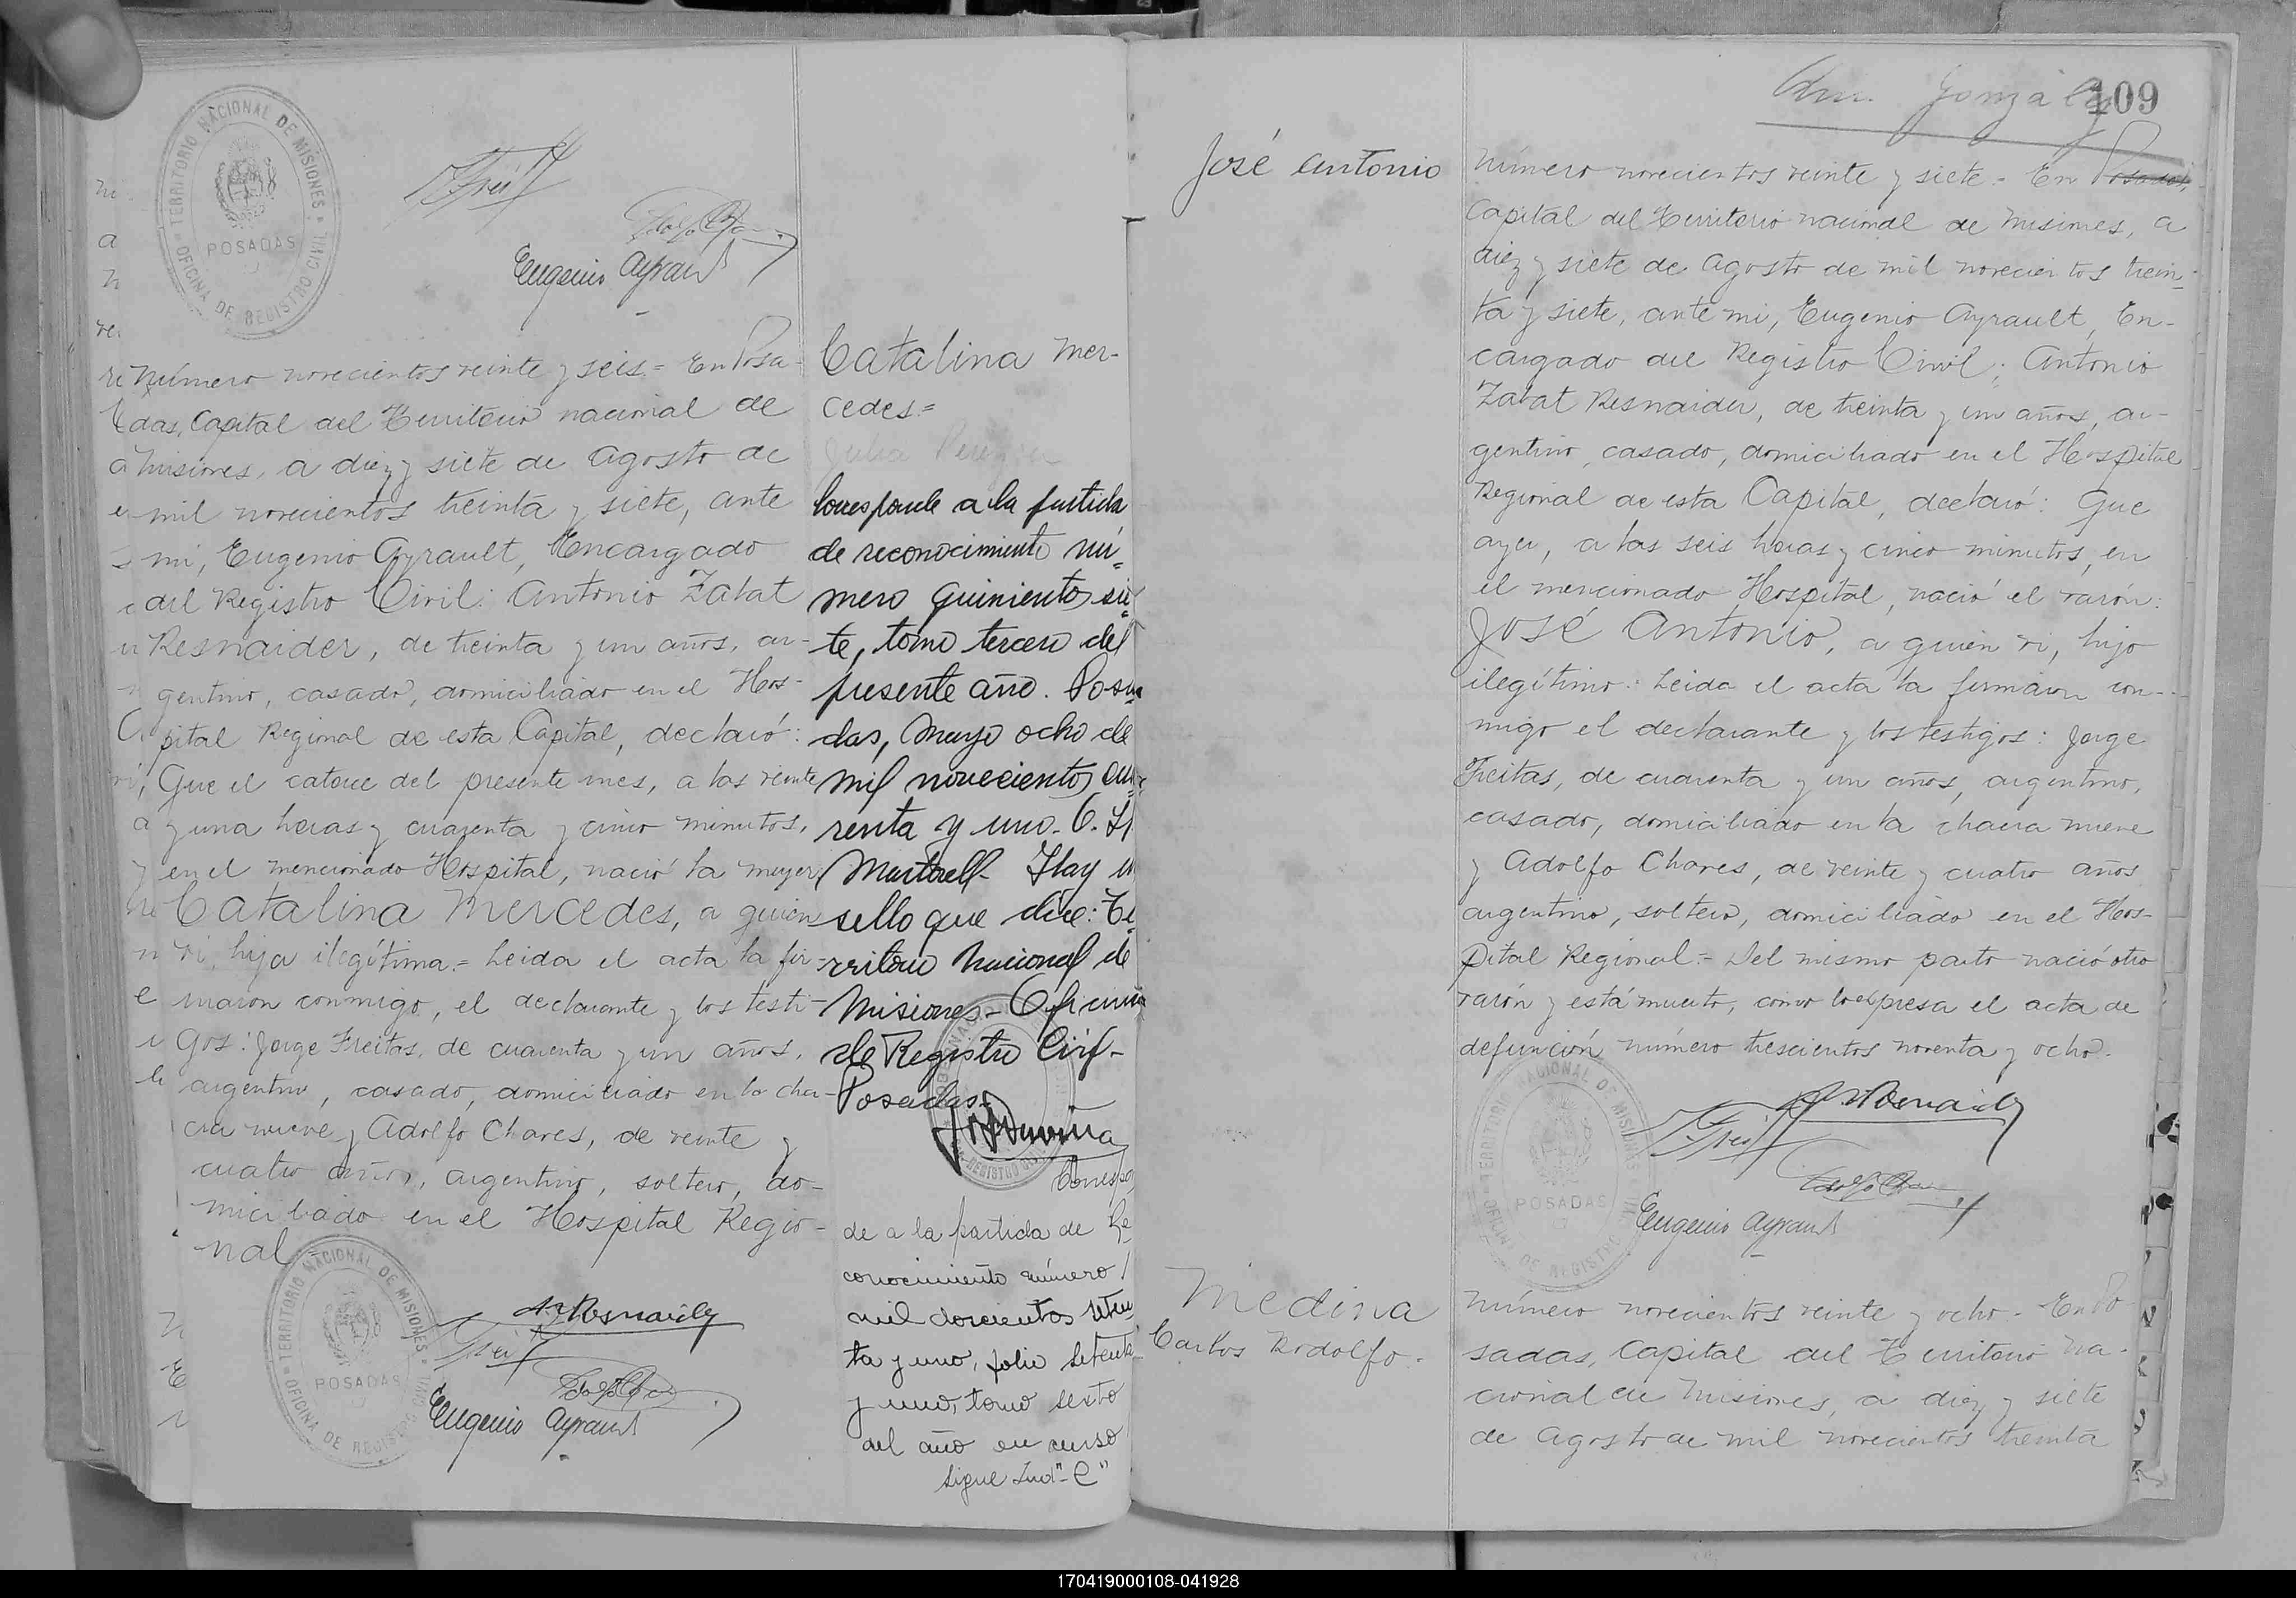 TERRITORIO NACIONAL DE MISIONES
OFICINA DE REGISTRO CIVIL
POSADAS
Eugenio Ayrault
Catalina Mer-
cedes=
Número novecientos veinte y seis= En Posa-
das, Capital del Territorio nacional de
Misiones, a diez y siete de Agosto de
mil novecientos treinta y siete, ante
mi, Eugenio Ayrault, Encargado
del Registro Civil: Antonio Zabat
Resnaider, de treinta y un años, ar-
gentino, casado, domiciliado en el Hos-
pital Regional de esta Capital, declaró:
Que el catorce del presente mes, a las veinte
y una horas y cuarenta y cinco minutos,
en el mencionado Hospital, nació la mujer:
Catalina Mercedes, a quien
vi, hija ilegítima.= Leida el acta la fir-
maron conmigo, el declarante y los testi-
gos: Jorge Freitas, de cuarenta y un años,
argentino, casado, domiciliado en la cha-
cra nueve y Adolfo Chaves, de veinte y
cuatro años, argentino, soltero, do-
miciliado en el Hospital Regio-
nal
TERRITORIO NACIONAL DE MISIONES
OFICINA DE REGISTRO CIVIL
POSADAS
Eugenio Ayrault
Corresponde a la partida
de reconocimiento nú-
mero quinientos sie-
te, tomo tercero del
presente año. Posa-
das, Mayo ocho de
mil novecientos cua-
renta y uno.
Hay un
sello que dice: Te-
rritorio Nacional de
Misiones- Oficina
de Registro Civil-
Posadas-
Correspon
de a la partida de Re
conocimiento número
mil doscientos seten
ta y uno, folio setenta
y uno, tomo sexto
del año en curso
Sigue Ind "C"
González
109
José Antonio
Número novecientos veinte y siete.- En Posadas,
Capital del Territorio nacional de Misiones, a
diez y siete de Agosto de mil novecientos trein-
ta y siete, ante mi, Eugenio Ayrault, En-
cargado del Registro Civil; Antonio
Zabat Resnaider, de treinta y un años, ar-
gentino, casado, domiciliado en el Hospital
Regional de esta Capital, declaró: Que
ayer, a las seis horas y cinco minutos, en
el mencionado Hospital, nació el varón:
José Antonio, a quien vi, hijo
ilegítimo.- Leida el acta la firmaron con-
migo el declarante y los testigos: Jorge
Freitas, de cuarenta y un años, argentino,
casado, domiciliado en la chacra nueve
y Adolfo Chaves, de veinte y cuatro años
argentino, soltero, domiciliado en el Hos-
pital Regional.- Del mismo parto nació otro
varón y está muerto, como lo expresa el acta de
defunción número trescientos noventa y ocho.
TERRITORIO NACIONAL DE MISIONES
OFICINA DE REGISTRO CIVIL
POSADAS
Eugenio Ayrault
Medina
Carlos Rodolfo.-
Número novecientos veinte y ocho.- En Po
sadas, Capital del Territorio na-
cional de Misiones, a diez y siete
de Agosto de mil novecientos treinta
170419000108-041928